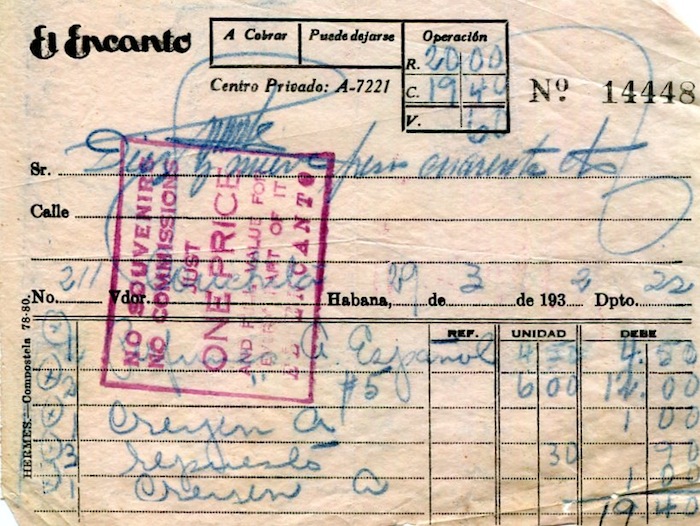 El Encanto
A Cobrar Puede dejarse Operación
R. 20 00
Centro Privado: A-7221 C. 19 40 Nº 14448
V. 60
Sr. Diez y nueve pesos cuarenta cts
Calle
No. 211 Vdor. Conchita Habana, 29 de 3 de 193 2 Dpto. 22
REF. UNIDAD DEBE
1 A. Español 4 50 4.50
2 " #5 6 00 12.00
1 Creyon A 1 00
3 repuesto 30 90
1 Creyon A 1 0
19 40
HERMES.—Compostela 78-80.
NO SOUVENIRS
NO COMMISSIONS
JUST
ONE PRICE
AND FULL VALUE FOR
EVERY PART OF IT
AT EL ENCANTO